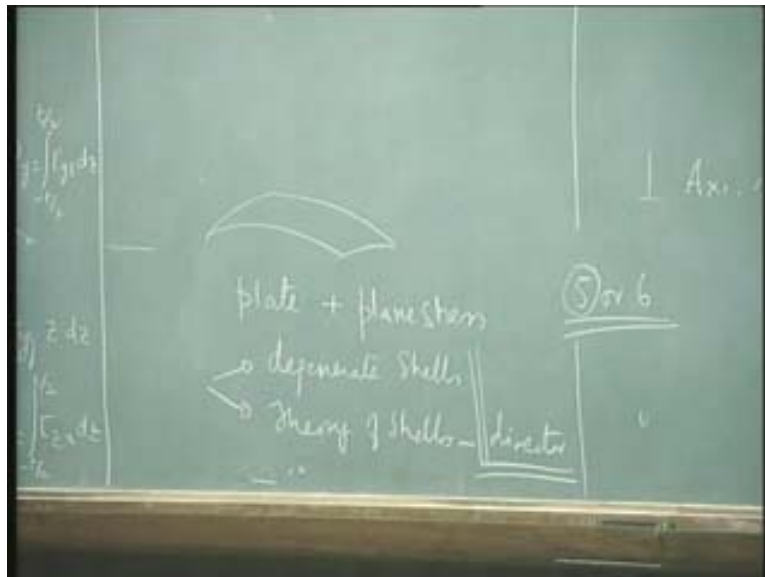 t/2
∫ τyz dz
-t/2
z dz
t/2
∫ τzx dz
-t/2
plate + plane stress
degenerate Shells
Theory of Shells – director
5 or 6
⊥ Axi